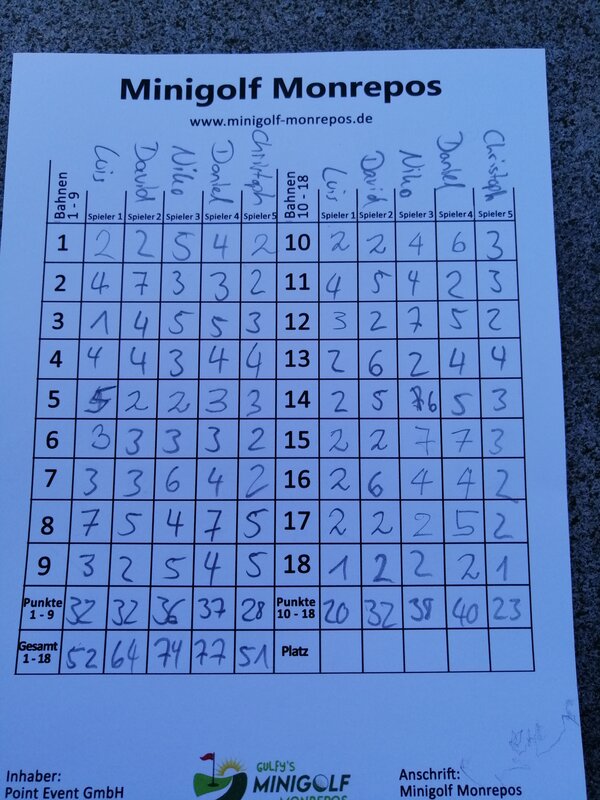 Minigolf Monrepos
www.minigolf-monrepos.de
Bahnen 1 - 9 Luis David Niko Daniel Christoph Bahnen 10 - 18 Luis David Niko Daniel Christoph
Spieler 1 Spieler 2 Spieler 3 Spieler 4 Spieler 5 Spieler 1 Spieler 2 Spieler 3 Spieler 4 Spieler 5
1 2 2 5 4 2 10 2 2 4 6 3
2 4 7 3 3 2 11 4 5 4 2 3
3 1 4 5 5 3 12 3 2 7 5 2
4 4 4 3 4 4 13 2 6 2 4 4
5 5 2 2 3 3 14 2 5 6 5 3
6 3 3 3 3 2 15 2 2 7 7 3
7 3 3 6 4 2 16 2 6 4 4 2
8 7 5 4 7 5 17 2 2 2 5 2
9 3 2 5 4 5 18 1 2 2 2 1
Punkte 1 - 9 32 32 36 37 28 Punkte 10 - 18 20 32 38 40 23
Gesamt 1 - 18 52 64 74 77 51 Platz
Inhaber:
Point Event GmbH
GULFY'S
MINIGOLF
MONREPOS
Anschrift:
Minigolf Monrepos